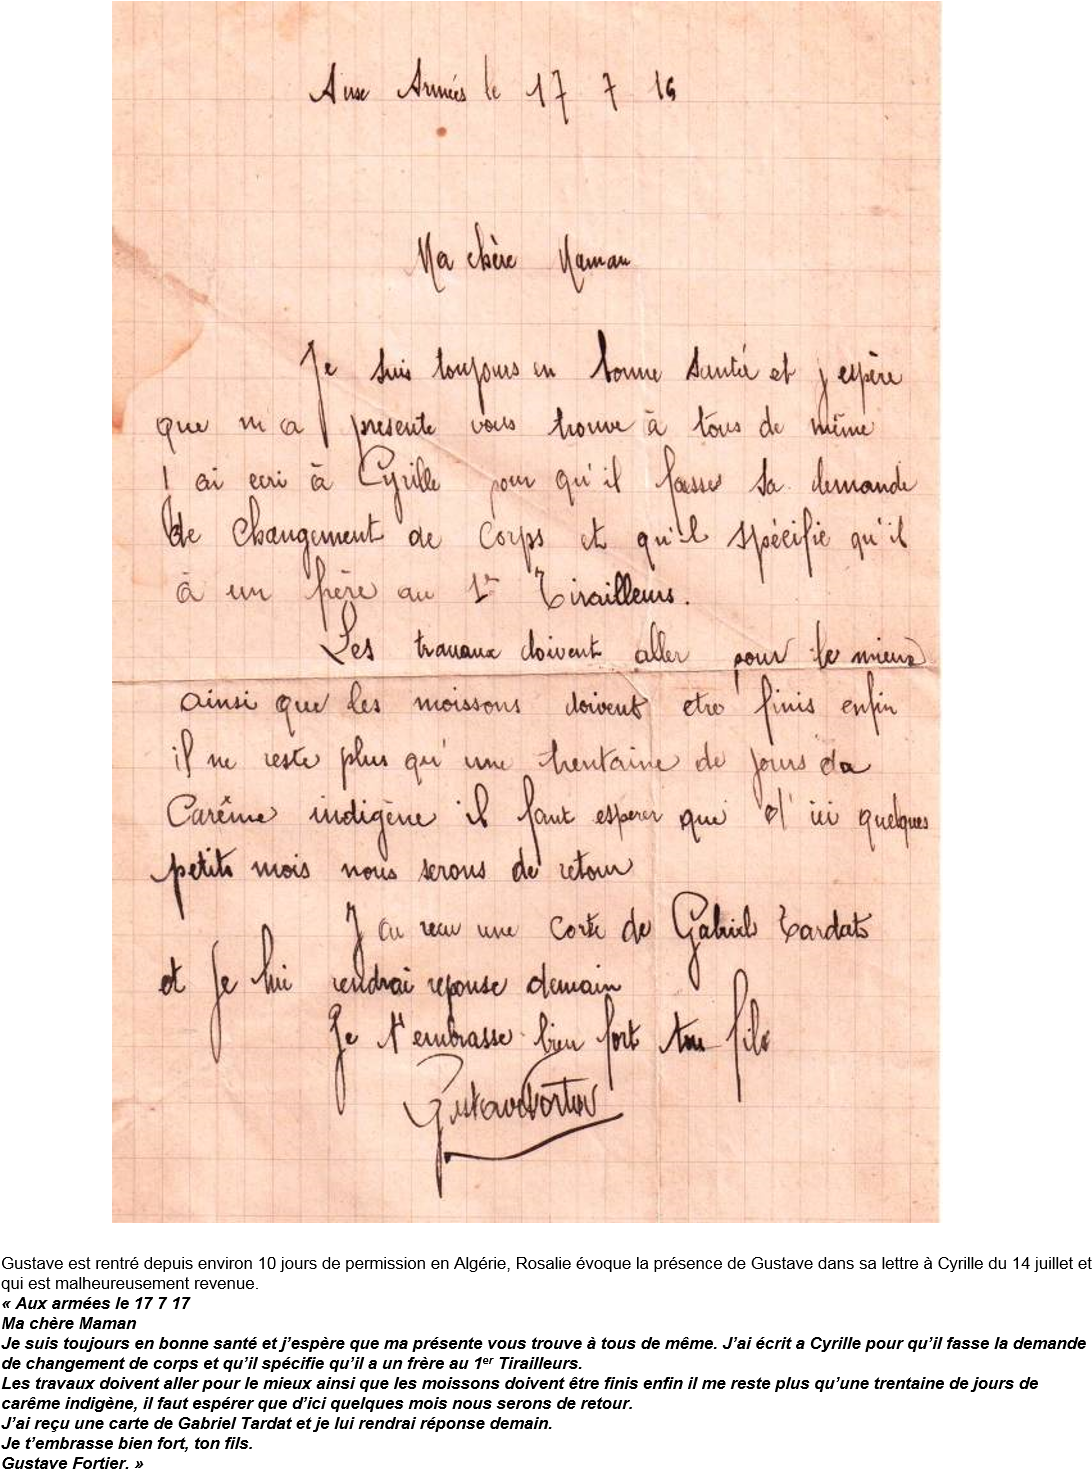 Aux Armées le 17 7 16
Ma chère Maman
Je suis toujours en bonne santé et j espère
que m a presente vous trouve à tous de même
J ai ecri à Cyrille pour qu'il fasse sa demande
de changement de corps et qu'il spécifie qu'il
à un frère au 1er Tirailleurs.
Les travaux doivent aller pour le mieux
ainsi que les moissons doivent etre finis enfin
il ne reste plus qu' une trentaine de jours da
Carême indigène il faut esperer que d' ici quelques
petits mois nous serons de retour
J ai recu une carte de Gabriel Tardat
et Je lui rendrai reponse demain
Je t' embrasse bien fort ton fils
Gustave Fortier
Gustave est rentré depuis environ 10 jours de permission en Algérie, Rosalie évoque la présence de Gustave dans sa lettre à Cyrille du 14 juillet et
qui est malheureusement revenue.
« Aux armées le 17 7 17
Ma chère Maman
Je suis toujours en bonne santé et j’espère que ma présente vous trouve à tous de même. J’ai écrit a Cyrille pour qu’il fasse la demande
de changement de corps et qu’il spécifie qu’il a un frère au 1er Tirailleurs.
Les travaux doivent aller pour le mieux ainsi que les moissons doivent être finis enfin il me reste plus qu’une trentaine de jours de
carême indigène, il faut espérer que d’ici quelques mois nous serons de retour.
J’ai reçu une carte de Gabriel Tardat et je lui rendrai réponse demain.
Je t’embrasse bien fort, ton fils.
Gustave Fortier. »